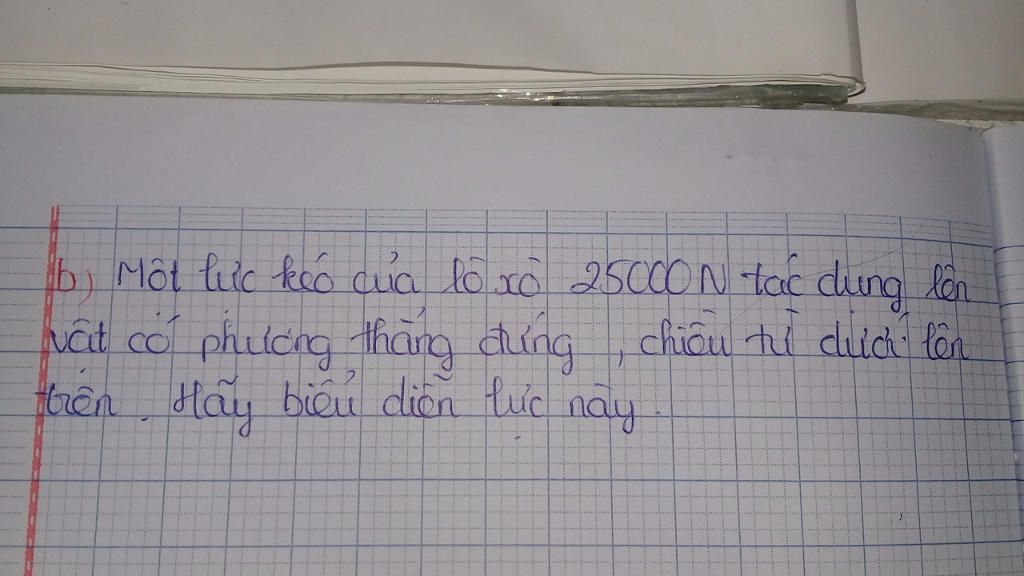 b) Một lực kéo của lò xò 25000N tác dụng lên
vật có phương thẳng đứng, chiều từ dưới lên
trên. Hãy biểu diễn lực này.